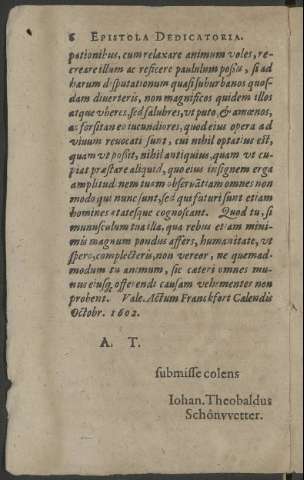 6 EPISTOLA DEDICATORIA.
pationibus, cum relaxare animum voles, re-
creare illum ac reficere paululum possis, si ad
harum disputationum quasi suburbanos quos-
dam diverteris, non magnificos quidem illos
atque vberes, sed salubres, vt puto, & amœnos,
ac forsitan eo iucundiores, quod eius opera ad
vivum revocati sunt, cui nihil optatius est,
quam vt possit, nihil antiquius, quam vt cu-
piat præstare aliquid, quo eius insignem erga
amplitudinem tuam observātiam omnes non
modo qui nunc sunt, sed qui futuri sunt etiam
homines ætatesque cognoscant. Quod tu, si
munusculum tua illa, qua rebus etiam mini-
mis magnum pondus affers, humanitate, vt
spero, complecteris, non vereor, ne quemad-
modum tu animum, sic cæteri omnes mu-
nus eiusq; offerendi causam vehementes non
probent. Vale. Actum Franckfort Calendis
Octobr. 1602.
A. T.
submisse colens
Iohan. Theobaldus
Schönvvetter.